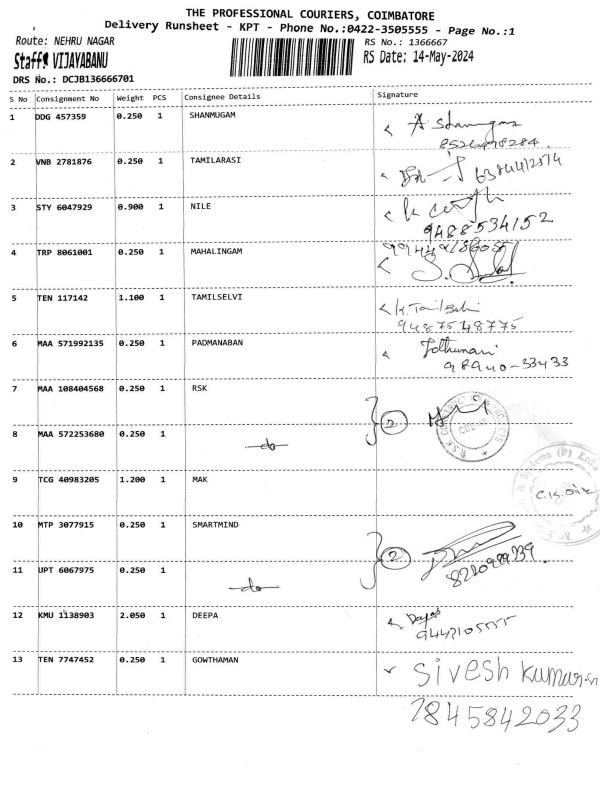 THE PROFESSIONAL COURIERS, COIMBATORE
Delivery Runsheet - KPT - Phone No.:0422-3505555 - Page No.:1
Route: NEHRU NAGAR
RS No.: 1366667
Staff: VIJAYABANU
RS Date: 14-May-2024
DRS No.: DCJB136666701
S No Consignment No Weight PCS Consignee Details Signature
1 DDG 457359 0.250 1 SHANMUGAM A. Shanmugam
8526498284.
2 VNB 2781876 0.250 1 TAMILARASI
3 STY 6047929 0.900 1 NILE
9488534152
4 TRP 8061001 0.250 1 MAHALINGAM
5 TEN 117142 1.100 1 TAMILSELVI K. Tamilselvi
9487548775
6 MAA 571992135 0.250 1 PADMANABAN
98940-33433
7 MAA 108404568 0.250 1 RSK 2
8 MAA 572253680 0.250 1 do
9 TCG 40983205 1.200 1 MAK
10 MTP 3077915 0.250 1 SMARTMIND 2
11 UPT 6067975 0.250 1 do
12 KMU 1138903 2.050 1 DEEPA
9443105555
13 TEN 7747452 0.250 1 GOWTHAMAN Sivesh kumar.n
7845842033